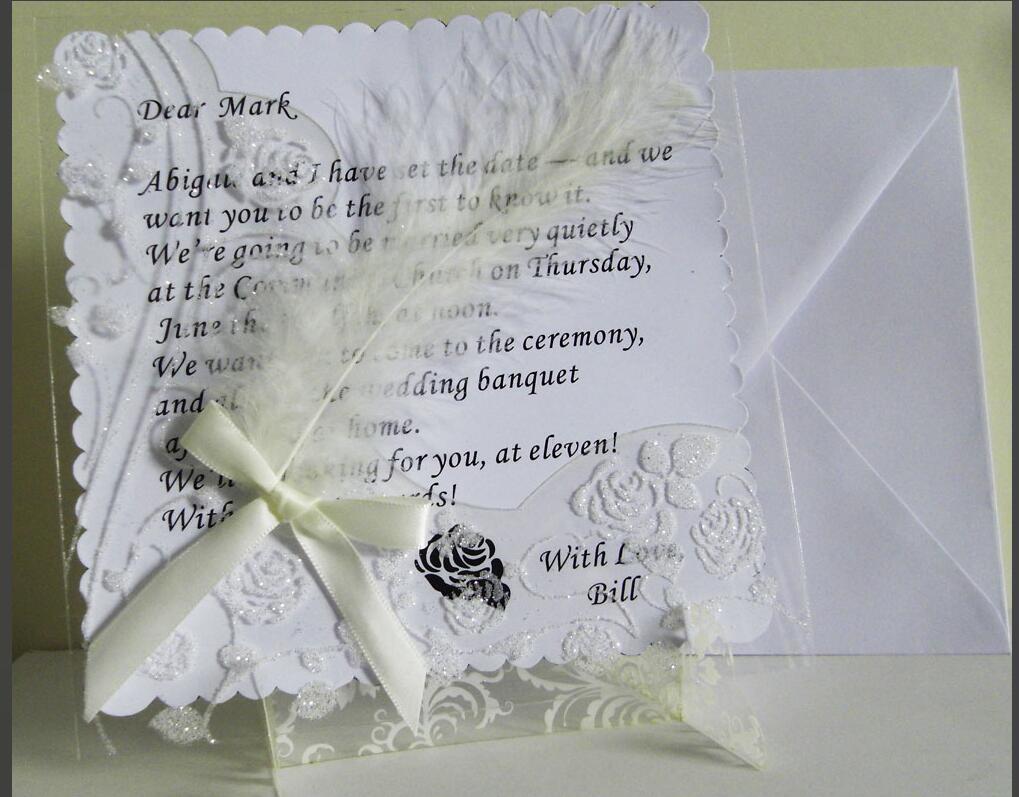 Dear Mark
Abigail and I have set the date — and we
want you to be the first to know it.
We're going to be married very quietly
at the Community Church on Thursday,
June the at noon.
We want to come to the ceremony,
and the wedding banquet
at home.
We'll be looking for you, at eleven!
With
With Love,
Bill